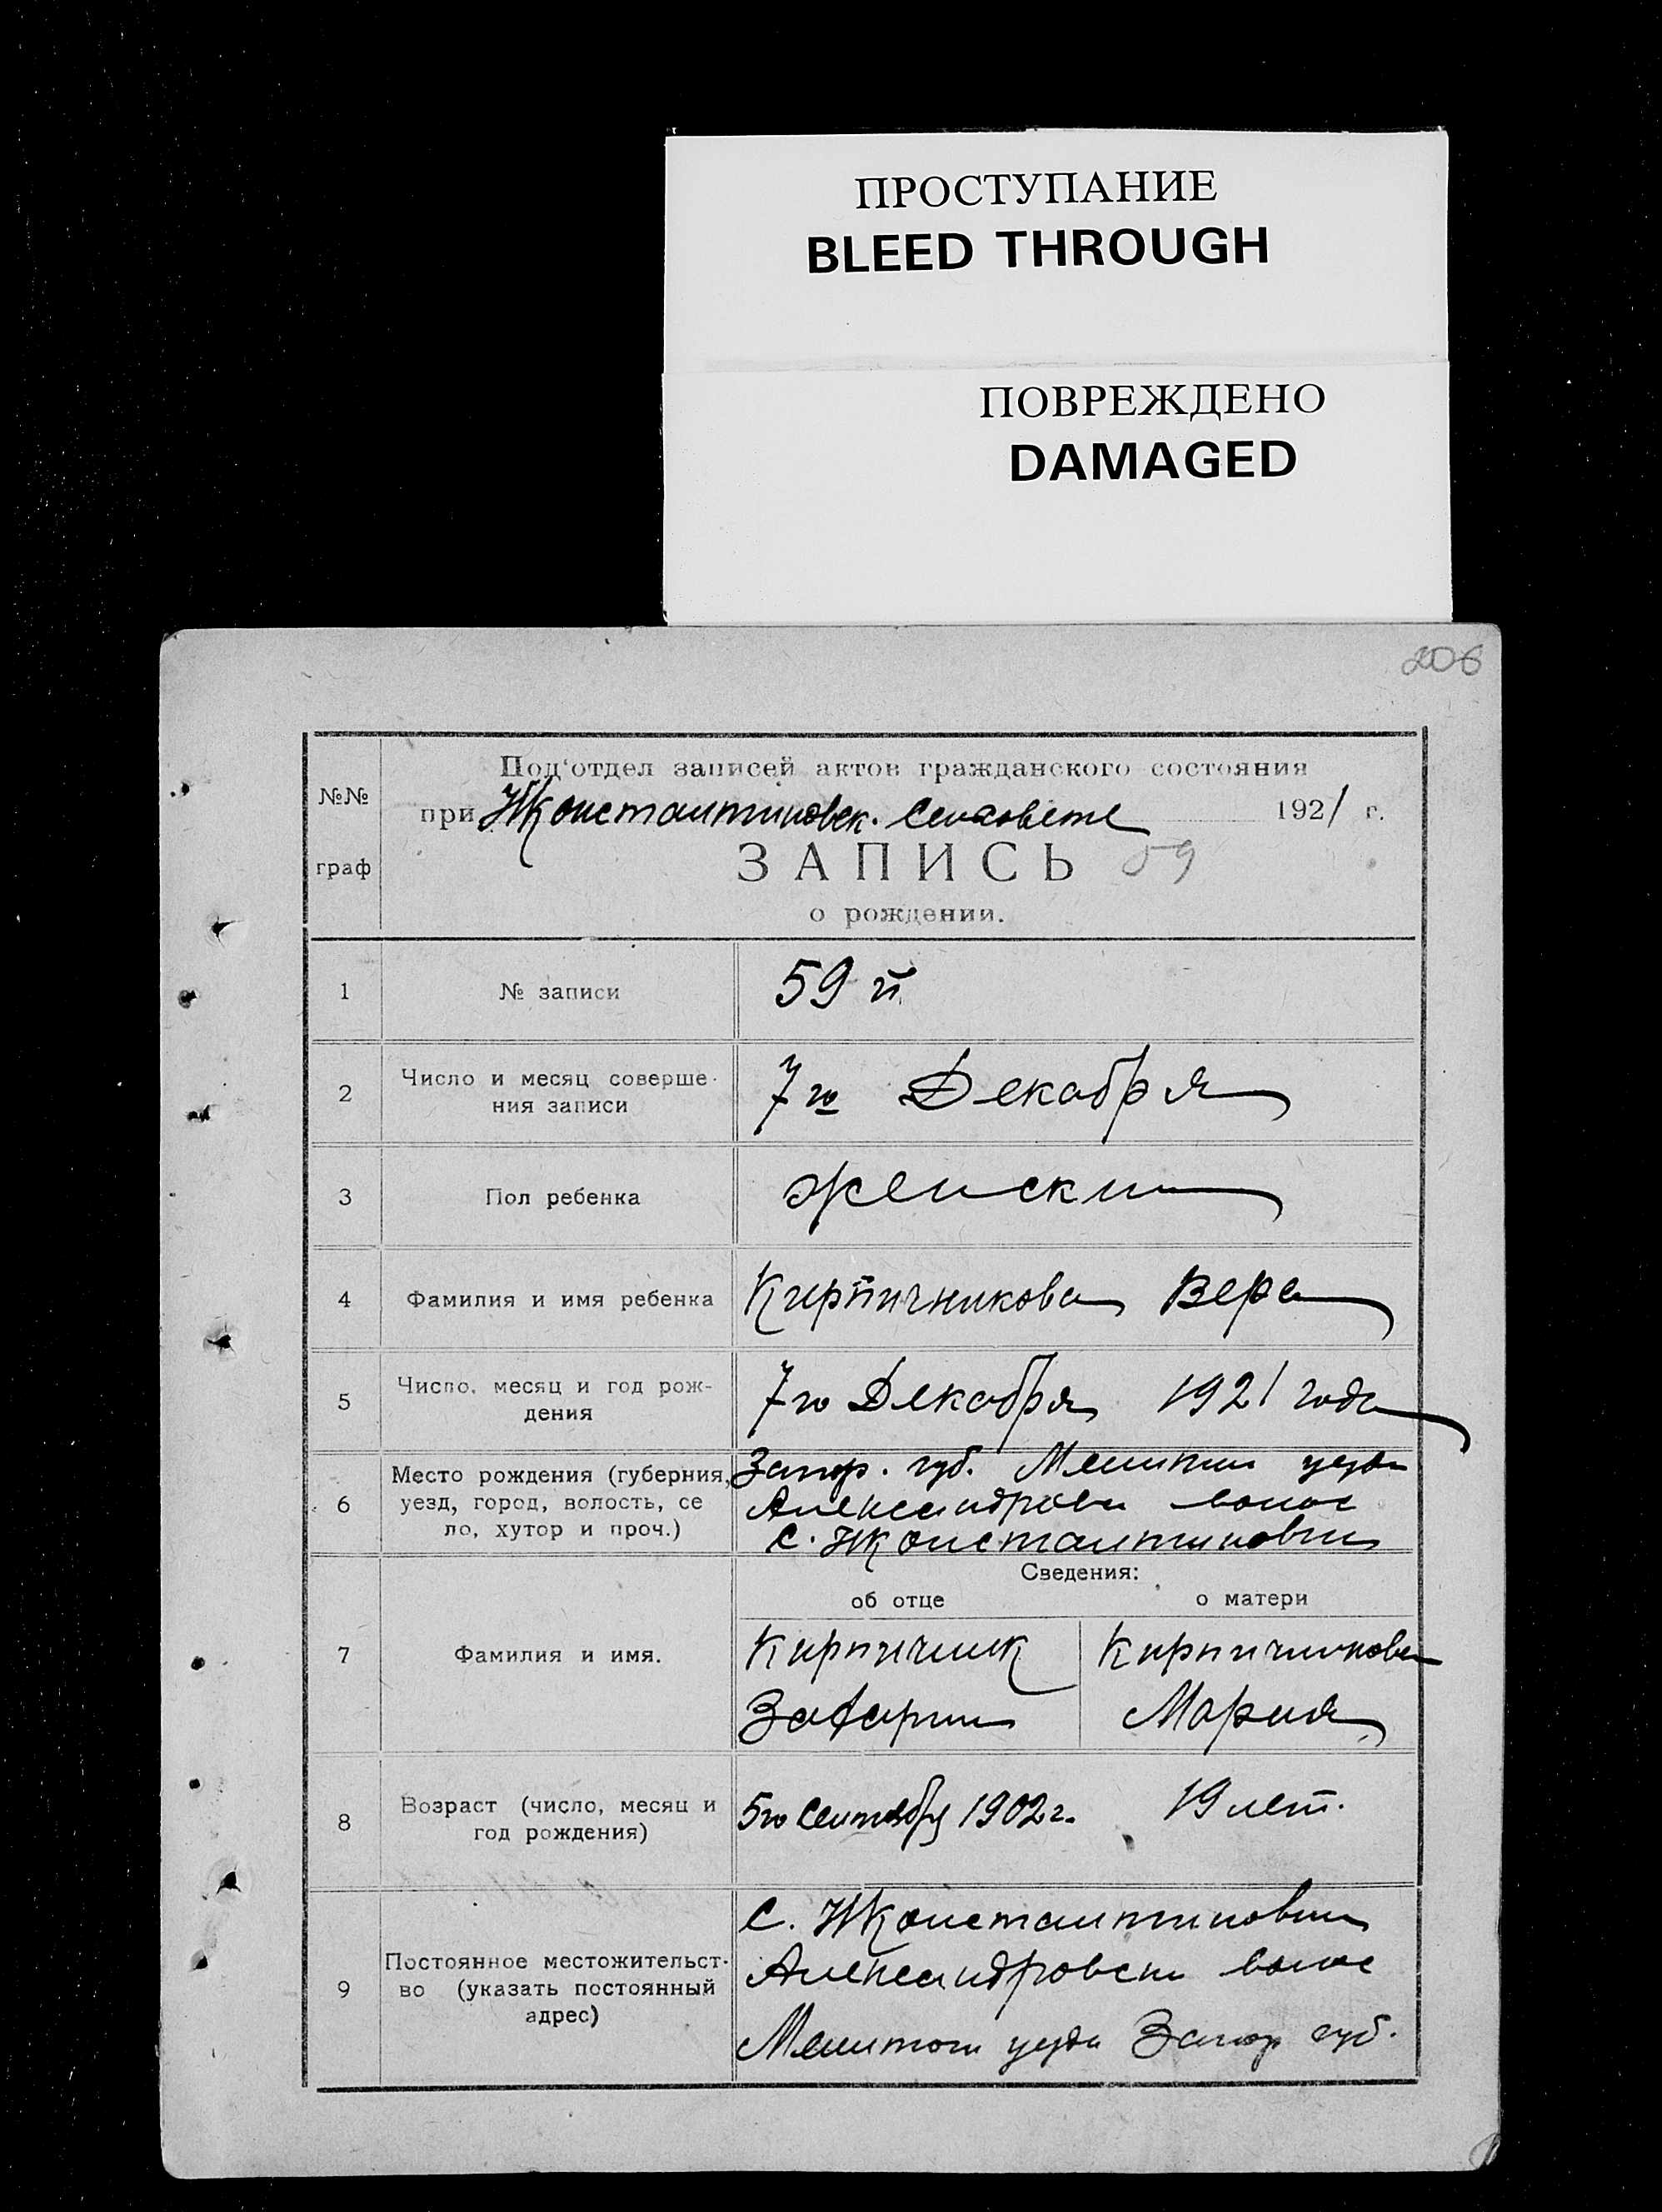 ПРОСТУПАНИЕ
BLEED THROUGH
ПОВРЕЖДЕНО
DAMAGED
206
№№
граф
Под‘отдел записей актов гражданского состояния
при НКонстантиновск. Сельсовете 1921 г.
ЗАПИСЬ 59
о рождении.
1 № записи 59й
2 Число и месяц соверше-
ния записи
7го Декабря
3 Пол ребенка женски
4 Фамилия и имя ребенка Кирпичникова Вера
5 Число, месяц и год рож-
дения
7го Декабря 1921 года
6 Место рождения (губерния,
уезд, город, волость, се
ло, хутор и проч.)
Запор. губ. уезда
Александровск волос
с. НКонстантиновки
Сведения:
об отце о матери
7 Фамилия и имя.
Кирпичник Кирпичникова
Захарий Мария
8 Возраст (число, месяц и
год рождения)
5го Сентября 1902г. 19 лет.
9 Постоянное местожительст-
во (указать постоянный
адрес)
с. НКонстантиновки
Александровск волос
Мелитоп уезда Запор губ.